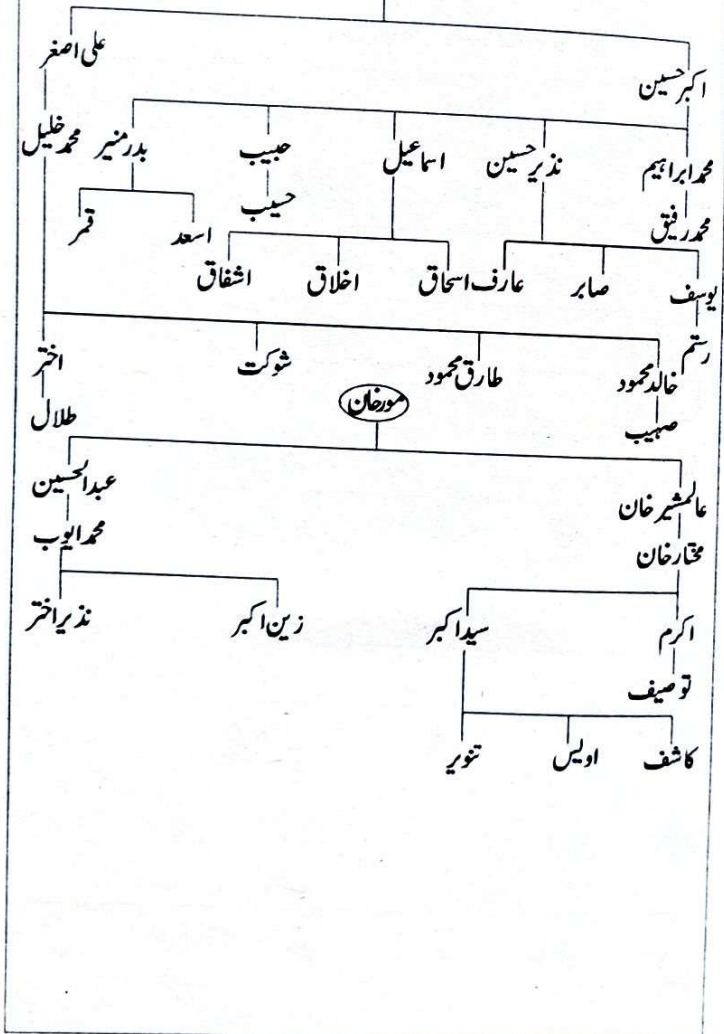 علی اصغر
اکبر حسین
محمد ابراہیم نذیر حسین اسماعیل حبیب بدر منیر محمد خلیل
محمد رفیق حسیب اسعد قمر
یوسف صابر عارف اسحاق اخلاق اشفاق
رستم خالد محمود طارق محمود شوکت اختر
صہیب مورخان طلال
عالمشیر خان عبدالحسین
مختار خان محمد ایوب
اکرم سید اکبر زین اکبر نذیر اختر
توصیف
کاشف اویس تنویر